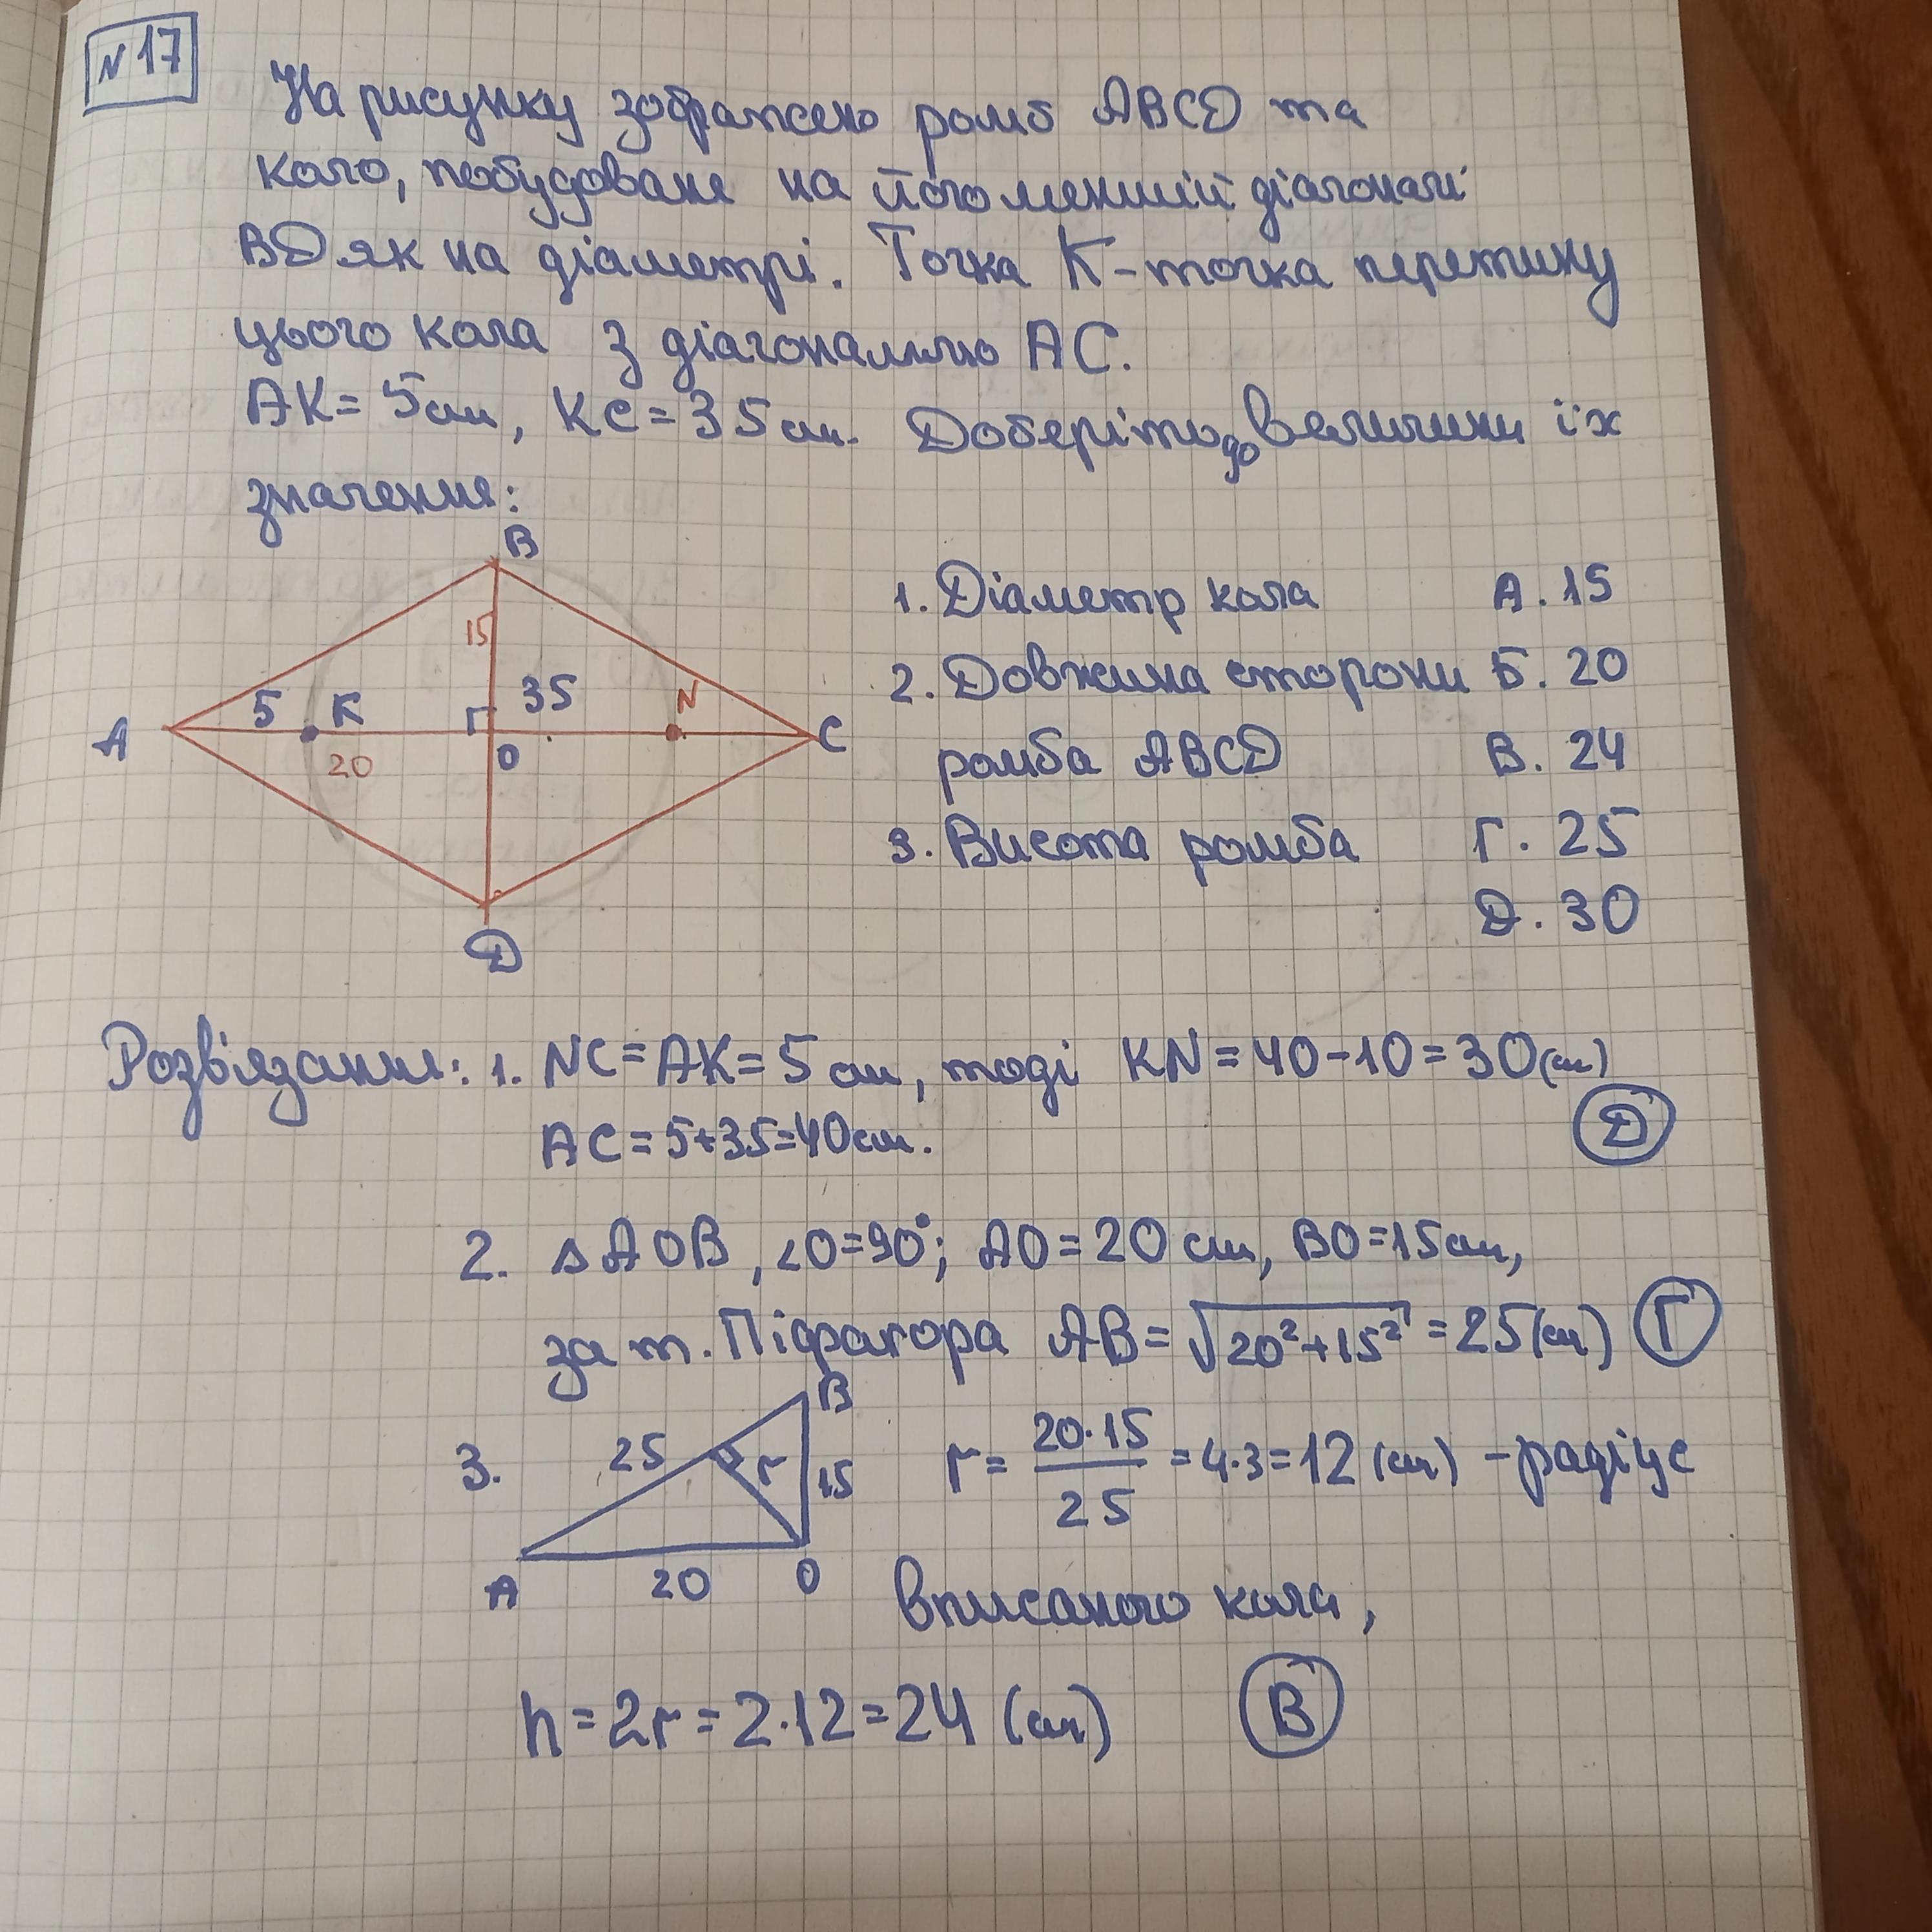 №17
На рисунку зображено ромб ABCD та
коло, побудоване на його меншій діагоналі
BD як на діаметрі. Точка K-точка перетину
цього кола з діагоналлю AC.
AK=5см, KC=35см. Доберіть до величини їх
значення:
B
15
5 K 35 N
A C
20 O
D
1. Діаметр кола А. 15
2. Довжина сторони Б. 20
ромба ABCD В. 24
3. Висота ромба Г. 25
Д. 30
Розв'язання: 1. NC=AK=5см, тоді KN=40-10=30(см)
AC=5+35=40см. Д
2. ΔAOB, ∠O=90°; AO=20 см, BO=15см,
за т. Піфагора AB=√20²+15²=25(см) Г
B
3. 25 r 15 r=20·15/25=4·3=12(см) -радіус
A 20 O
вписаного кола,
h=2r=2·12=24 (см) В